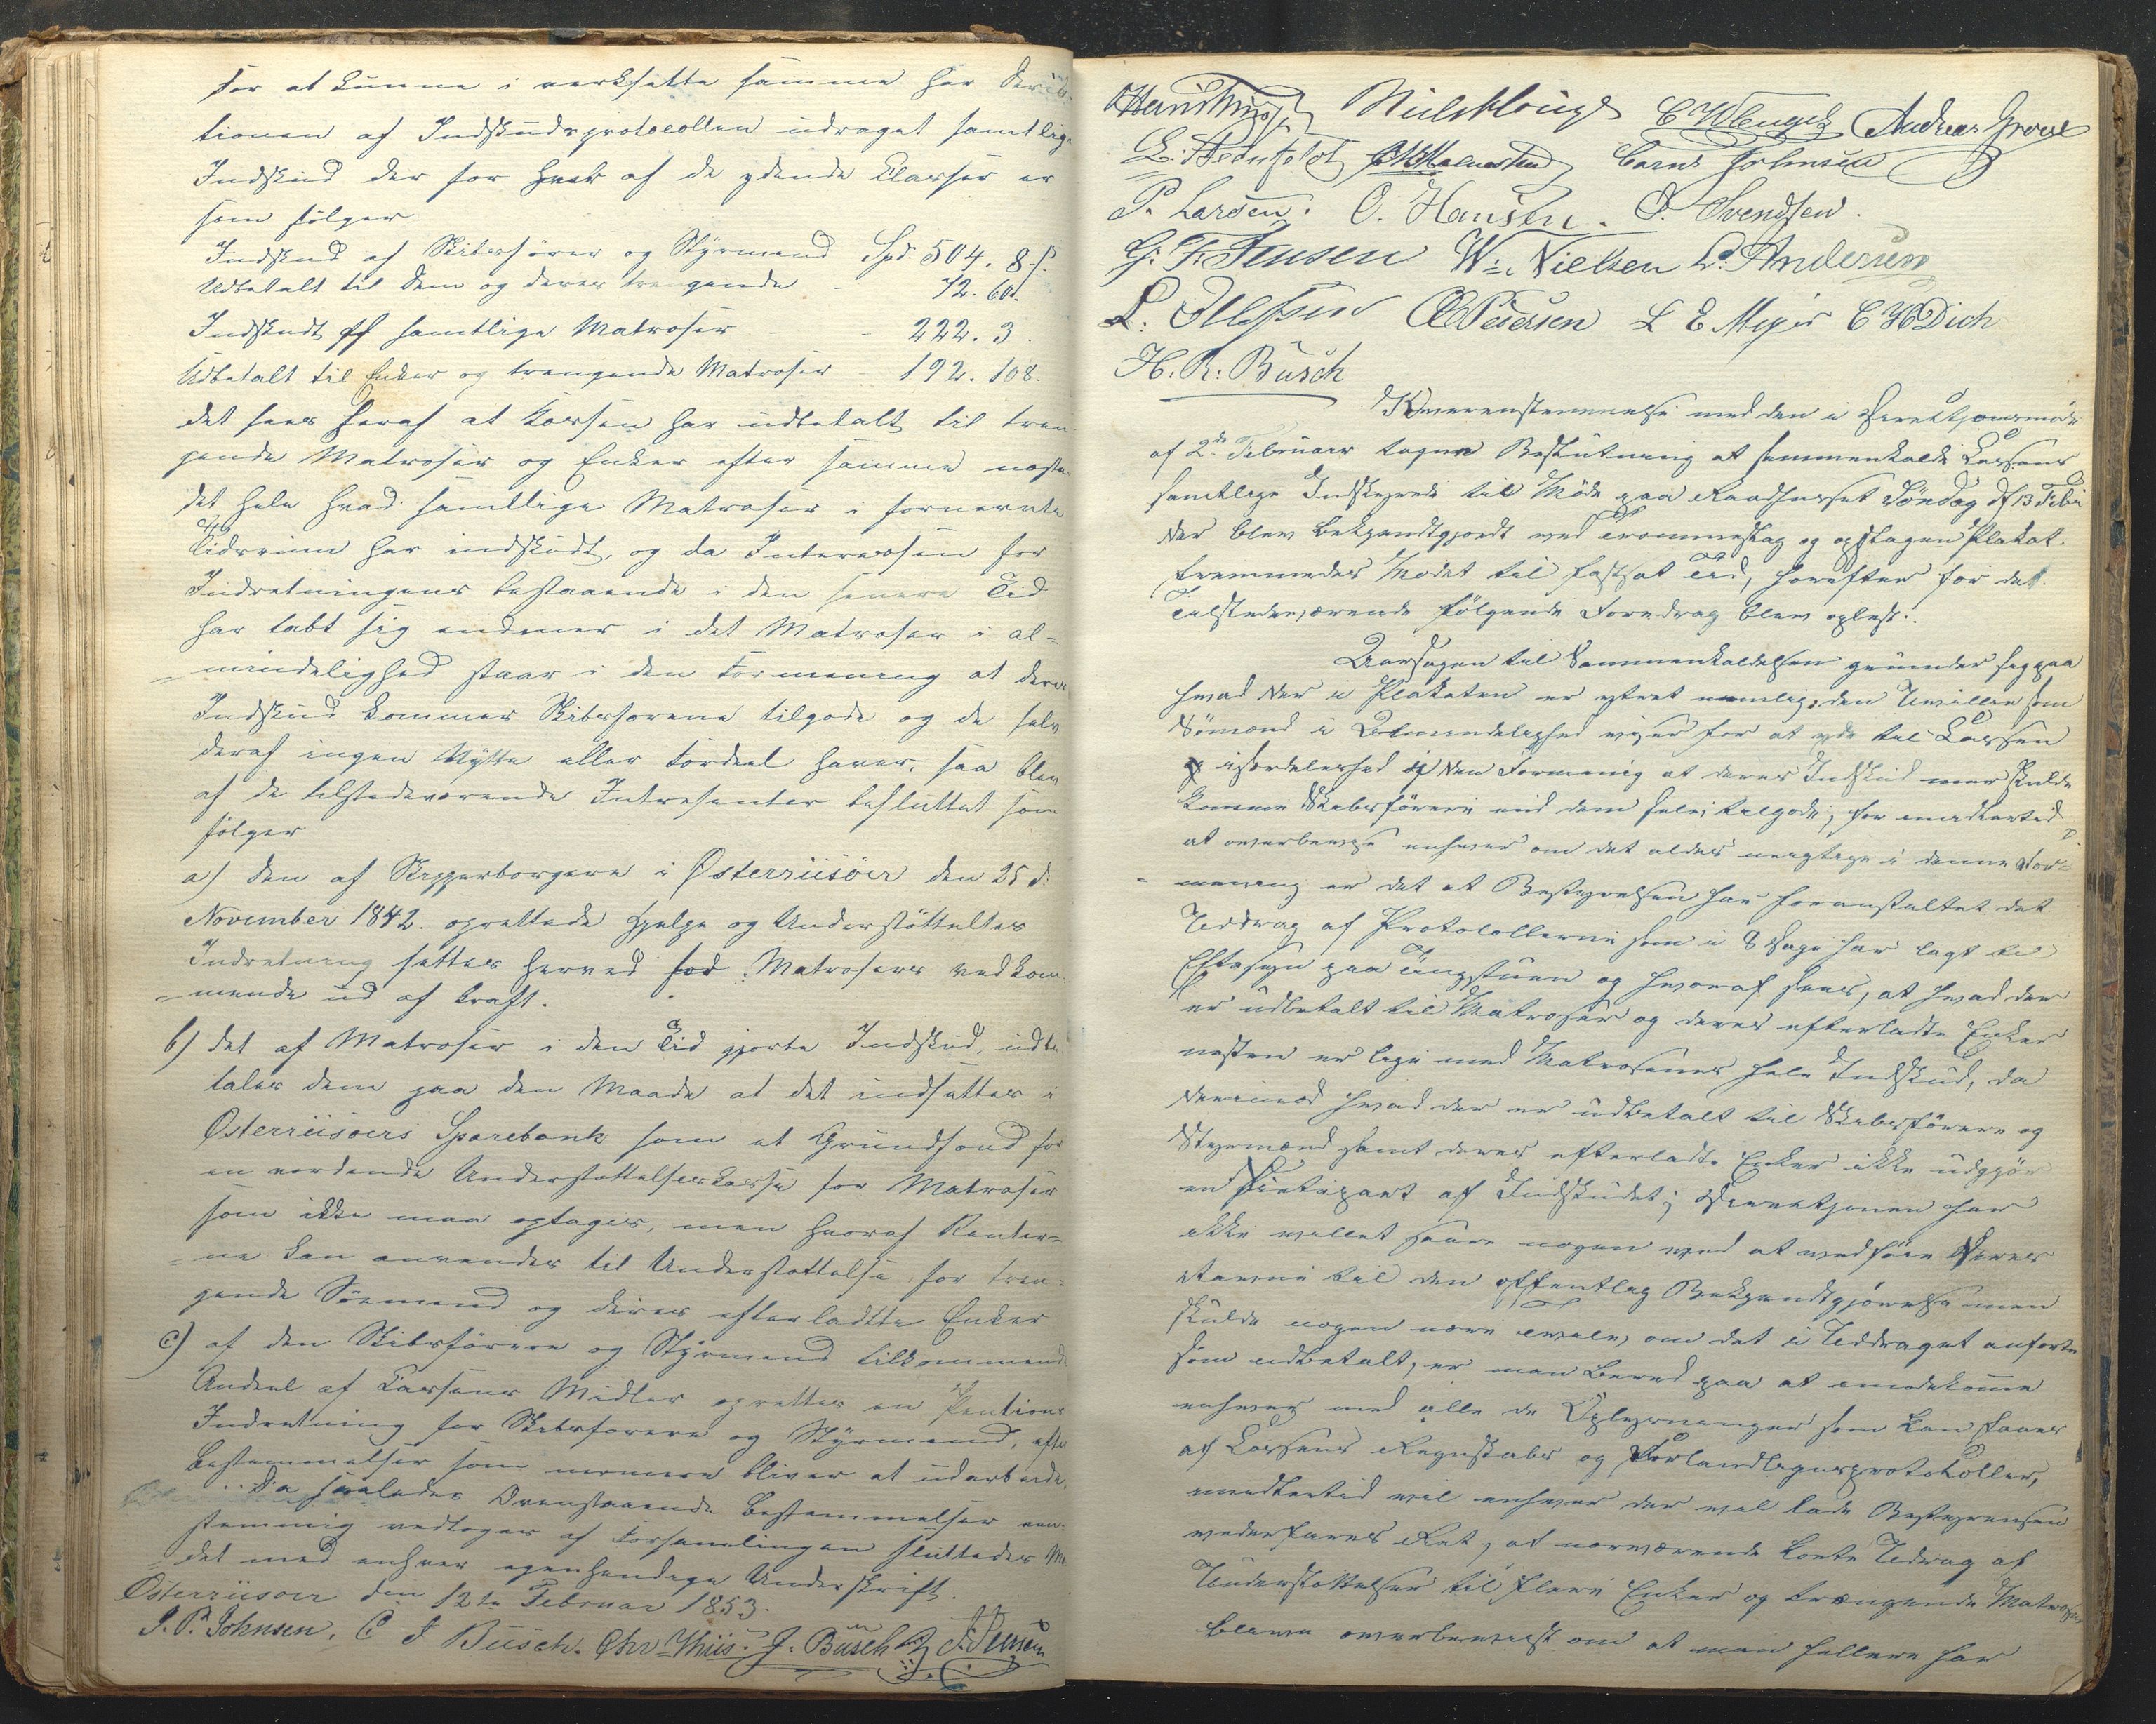 for at kunne i verksætte samme har Direk-
tionen af Indskudsprotocollen udraget samtlige
Indskud der for hver af de ydende Classer er
som følger
Indskud af Skibsfører og Styrmænd Spd. 504. 8 s.
Udbetalt til dem og deres trængende - 72. 60.
Indskudt af samtlige Matroser - - 222. 3.
Udbetalt til Enker og trængende Matroser - 192. 108.
det sees heraf at Kassen har udbetalt til træn
gende Matroser og Enker efter samme næsten
det hele hvad samtlige Matroser i fornævnte
Tidsrum har indskudt, og da Interessen for
Indretningens bestaaende i den senere Tid
har tabt sig endmer i det Matroser i al=
=mindelighed staar i den Formening at deres
Indskud kommer Skibsførerne tilgode og de selv
deraf ingen Nytte eller Fordeel haver, saa blev
af de tilstedeværende Intresenter besluttet som
følger
a) den af Skipperborgere i Østerriisöer den 25 d:
November 1842. oprettede Hjelpe og Understöttelses
Indretning sættes herved for Matrosers vedkom
=mende ud af kraft.
b) det af Matroser i den Tid gjorte Indskud, udbe
tales dem paa den Maade at det indsættes i
Østerriisoers Sparebank som et Grundfond for
en vordende Understøttelseskasse for Matroser
som ikke maa optages, men hvoraf Renter=
=ne kan anvendes til Understøttelse for træn=
gende Söemænd og deres efterladtte Enker
c) af den Skibsførere og Styrmænd tilkommende
Andeel af Cassens Midler oprettes en Pentions
Indretning for Skibsførere og Styrmænd, efter
Bestemmelser som nærmere bliver at udarbeide.
Da saaledes Ovenstaaende Bestemmelser een-
stemmig vedtoges af Forsamlingen sluttedes Mö
=det med enhver egenhendige Underskrift.
Österriisoer den 12te Februar 1853.
J. P. Johnsen. C J Busch. Chr Thiis. J. Busch F. Jensen
Niels Klouge C W Engels Andreas Grove
L. Stedufeldt Carns Johnsen
P. Larsen. O. Hansen. O. Svendsen.
G. F. Jensen W. Nielsen L. Andersen
L. Ellefsen Pedersen L E Meyer C H Dich
H. R. Busch
I Overensstemmelse med den i Direktjonsmøde
af 2de Februar tagne Beslutning at sammenkalde Cassens
samtlige Indskydende til Møde paa Raadhuset Söndag d 13 Febr
der blev bekjendtgjordt ved Trommeslag og opslagen Plakat.
fremmedes Mödet til fastsat Tid, hvorefter for det
Tilstedeværende følgende Foredrag blev oplest:
Aarsagen til Sammenkaldelsen grunder sig paa
hvad der i Plakaten er ytret nemlig: den Uvillie som
Sömænd i Almindelighed viser for at yde til Cassen
isærdeleshed i den Formening at deres Indskud mer skulde
komme Skibsförere end dem selv tilgode; for imidlertid
at overbevise enhver om det aldeles urigtige i denne For=
=mening er det at Bestyrelsen har foranstaltet det
Uddrag af Protocollerne som i 8 Dage har lagt til
Eftersyn paa Tingstuen og hvoraf sees, at hvad der
er udbetalt til Matroser og deres efterladte Enker
næsten er lige med Matrosenes hele Indskud, da
derimod hvad der er udbetalt til Skibsförere og
Styrmænd samt deres efterladte Enker ikke udgjör
en Sietepart af Indskudet; Direktjonen har
ikke villet saare nogen ved at vedföie Deres
Navne til den offentlig Bekjendtgjörelse men
skulde nogen være tvivle, om det i Uddraget anforte
som udbetalt, er man bered paa at imödekomme
enhver med alle de Oplysninger som kan faaes
af Cassens Regnskabs og Forhandlingsprotokoller,
imidlertid vil enhver der vil lade Bestyrelsen
vederfares Ret, at nærværende korte Udrag af
Understøttelser til flere Enker og trængende Matroser
blive overbeviist om at man hellere har